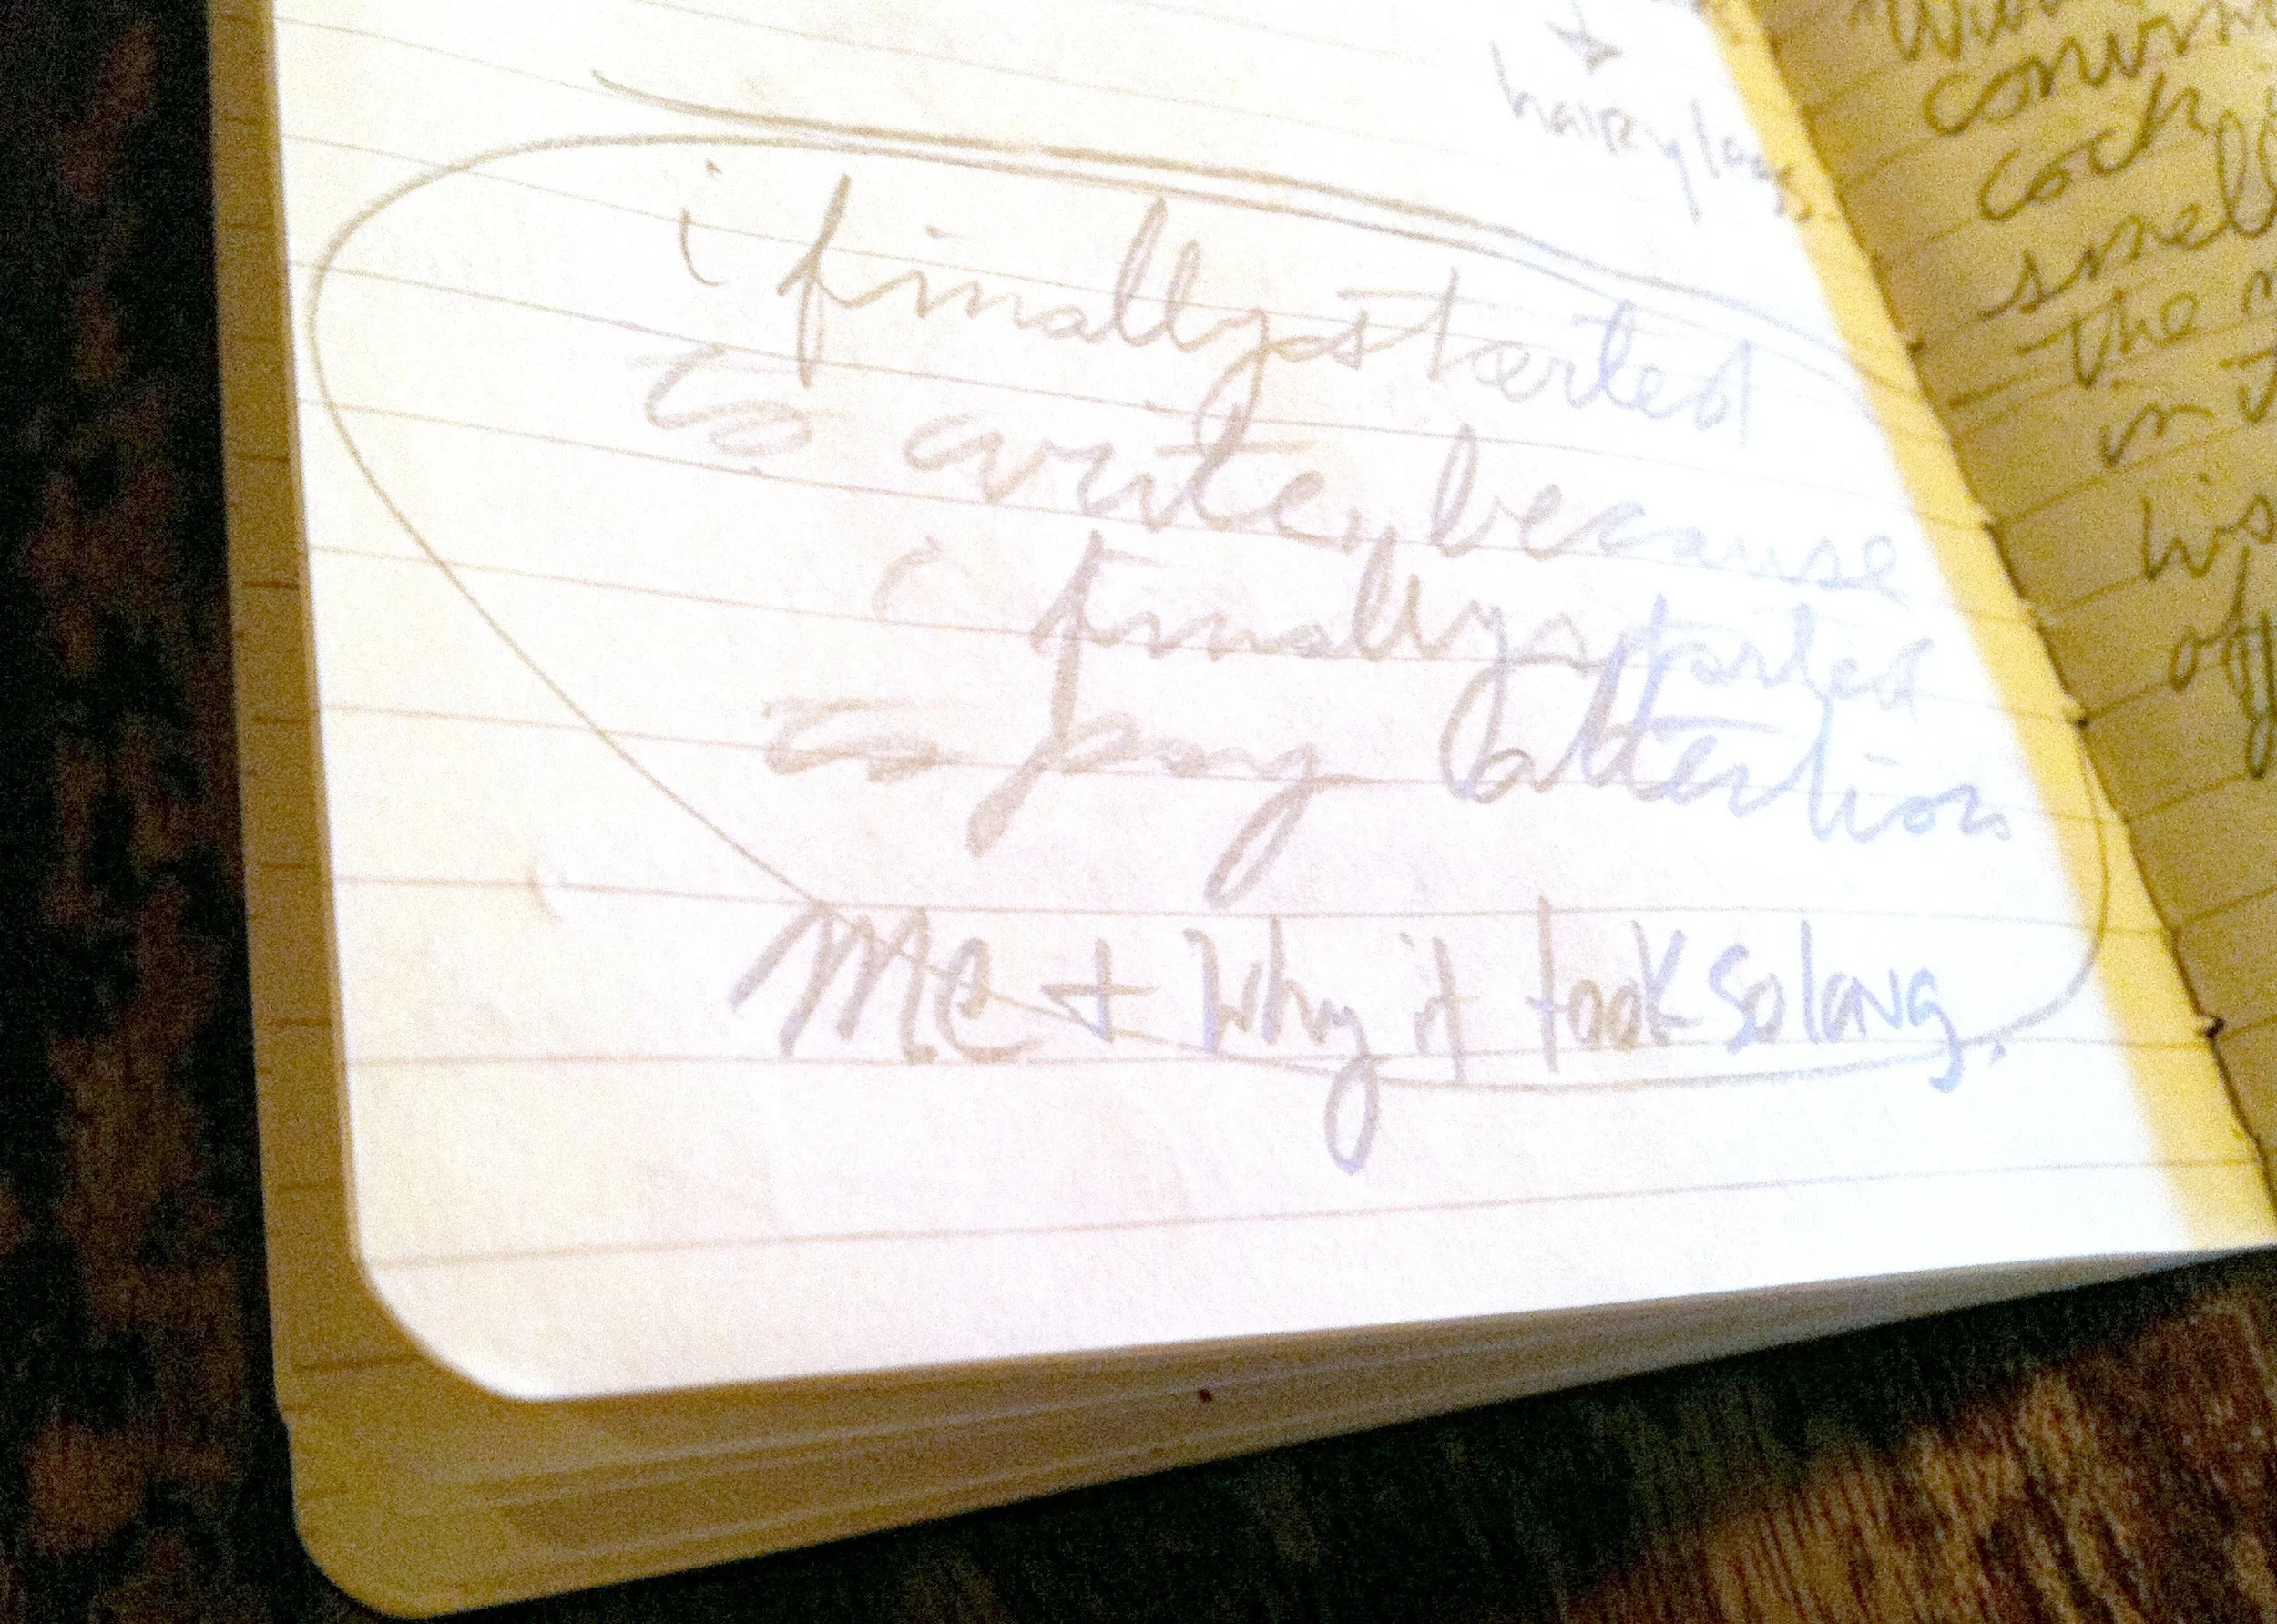 hairy legs.
i finally started
to write, because
i finally started
to pay attention
MC + Why it took so long.
cock
smell
the
in
his
of